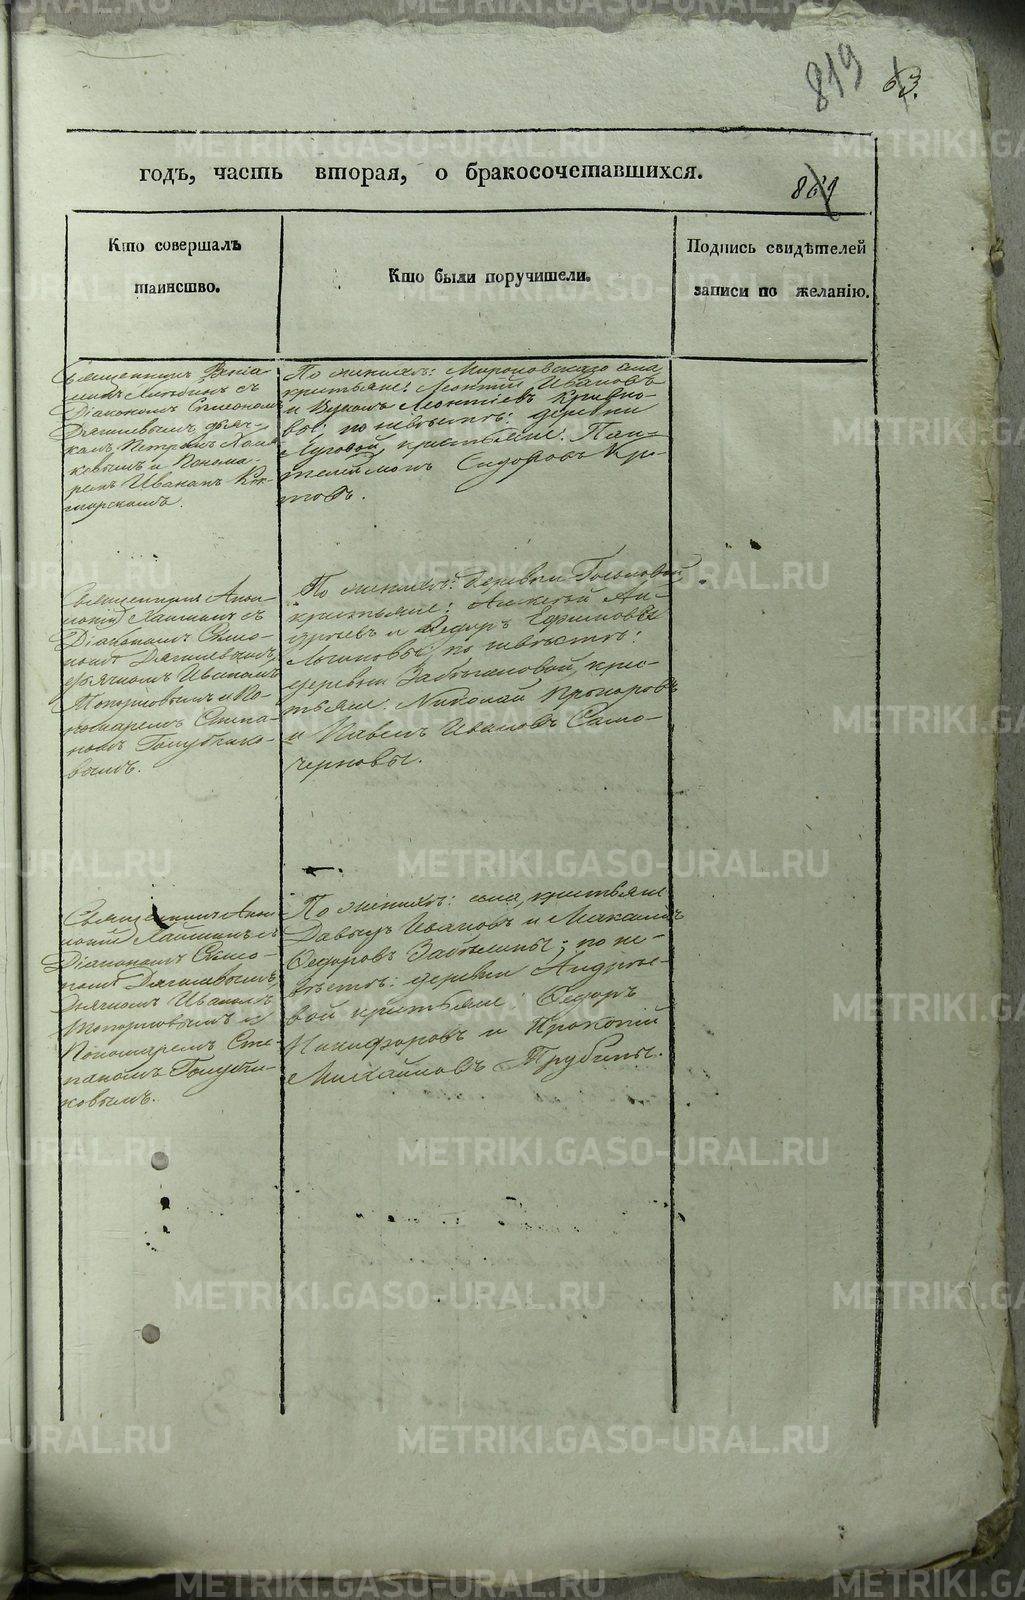 819
63.
годъ, часть вторая, о бракосочетавшихся.
Кто совершалъ
таинство.
Кто были поручители.
Подпись свидѣтелей
записи по желанію.
Священникъ
съ
Діакономъ Симеономъ
Дягилевымъ, дьяч-
комъ Петромъ
ковымъ и Понома-
ремъ Иваномъ
По женихѣ: Мироновскаго села
крестьяне: Леонтій Ивановъ
и Леонтіевъ
вы; по невѣстѣ: деревни
Луговой, крестьяне: Пан-
телеймонъ Сидоровъ
Священникъ Апол-
лоній съ
Діакономъ Симе-
ономъ Дягилевымъ,
дьячкомъ Иваномъ
Топорковымъ и По-
номаремъ Степа-
номъ Голубчико-
вымъ.
По женихѣ: деревни
крестьяне: Алексѣй Ан-
дреевъ и Федоръ Ефимовъ
по невѣстѣ:
деревни крес-
тьяне: Николай Прохоровъ
и Павелъ Ивановъ Само-
черновы.
Священникъ Апол-
лоній съ
Діакономъ Симе-
ономъ Дягилевымъ,
дьячкомъ Иваномъ
Топорковымъ и
Пономаремъ Сте-
паномъ Голубчи-
ковымъ.
По женихѣ: села, крестьяне
Давыдъ Ивановъ и Максимъ
Федоровъ Забѣлины; по не-
вѣстѣ: деревни Андрее-
вой крестьяне: Федоръ
Никифоровъ и Прокопій
Михайловъ Трубины.
METRIKI.GASO-URAL.RU